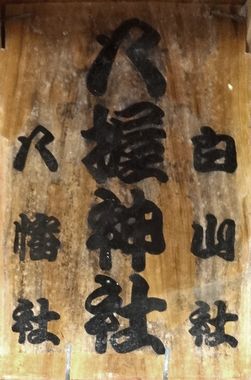 白山社
八握神社
八幡社